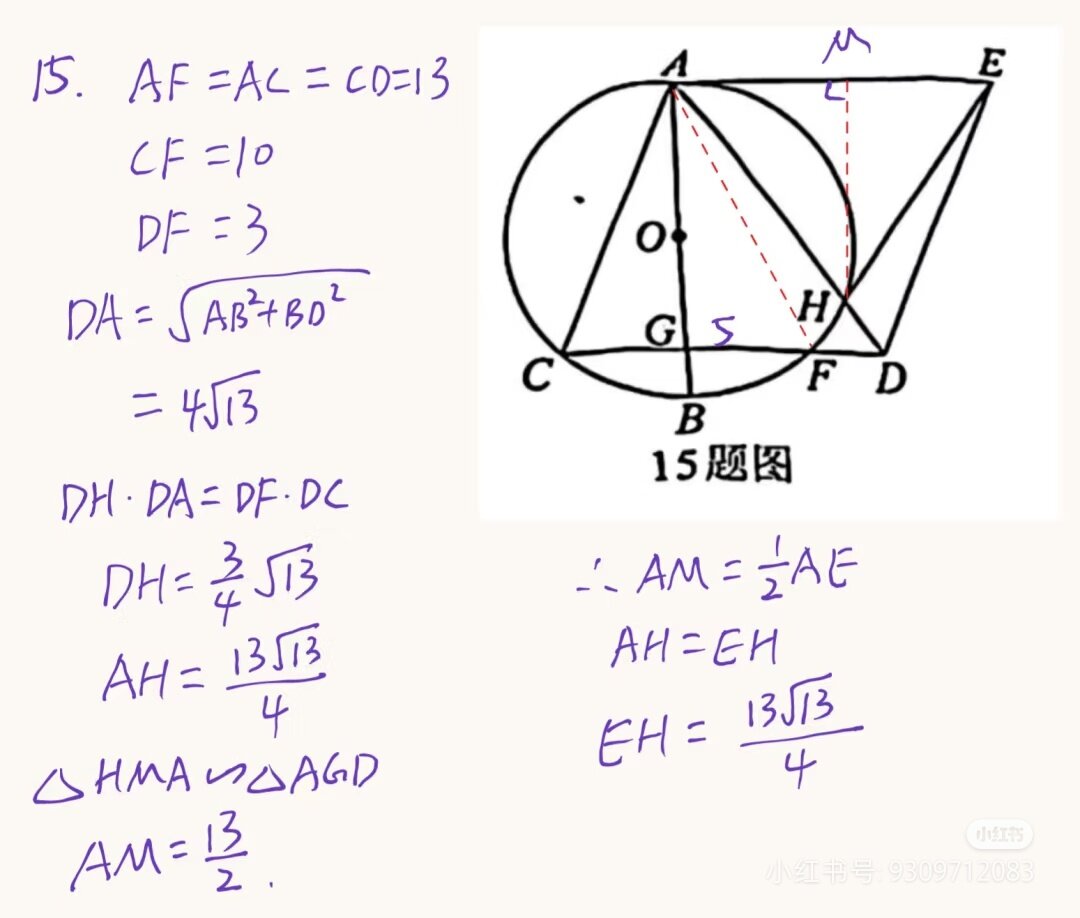 15. AF = AC = CD = 13
CF = 10
DF = 3
DA = √(AB²+BD²)
= 4√13
DH · DA = DF · DC
DH = 3/4 √13
AH = 13√13/4
△HMA ∽ △AGD
AM = 13/2 .
M
A
E
O
H
G
5
C
F
D
B
15题图
∴ AM = 1/2 AE
AH = EH
EH = 13√13/4
小红书
小红书号: 9309712083